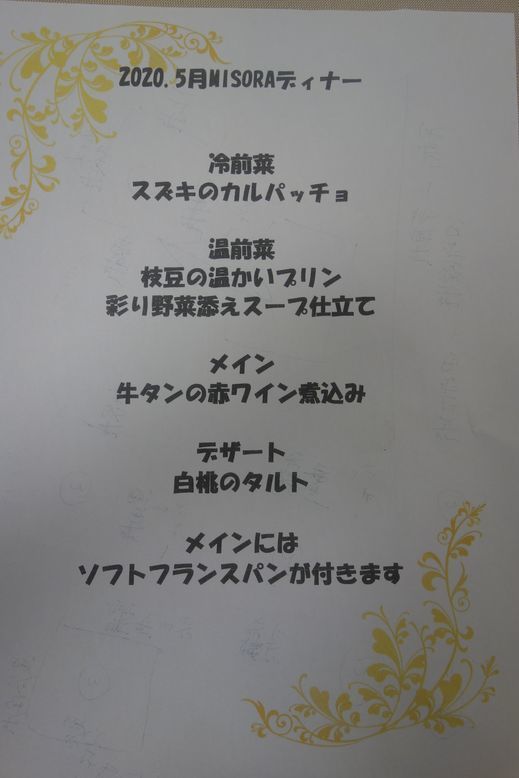 2020.5月MISORAディナー
冷前菜
スズキのカルパッチョ
温前菜
枝豆の温かいプリン
彩り野菜添えスープ仕立て
メイン
牛タンの赤ワイン煮込み
デザート
白桃のタルト
メインには
ソフトフランスパンが付きます